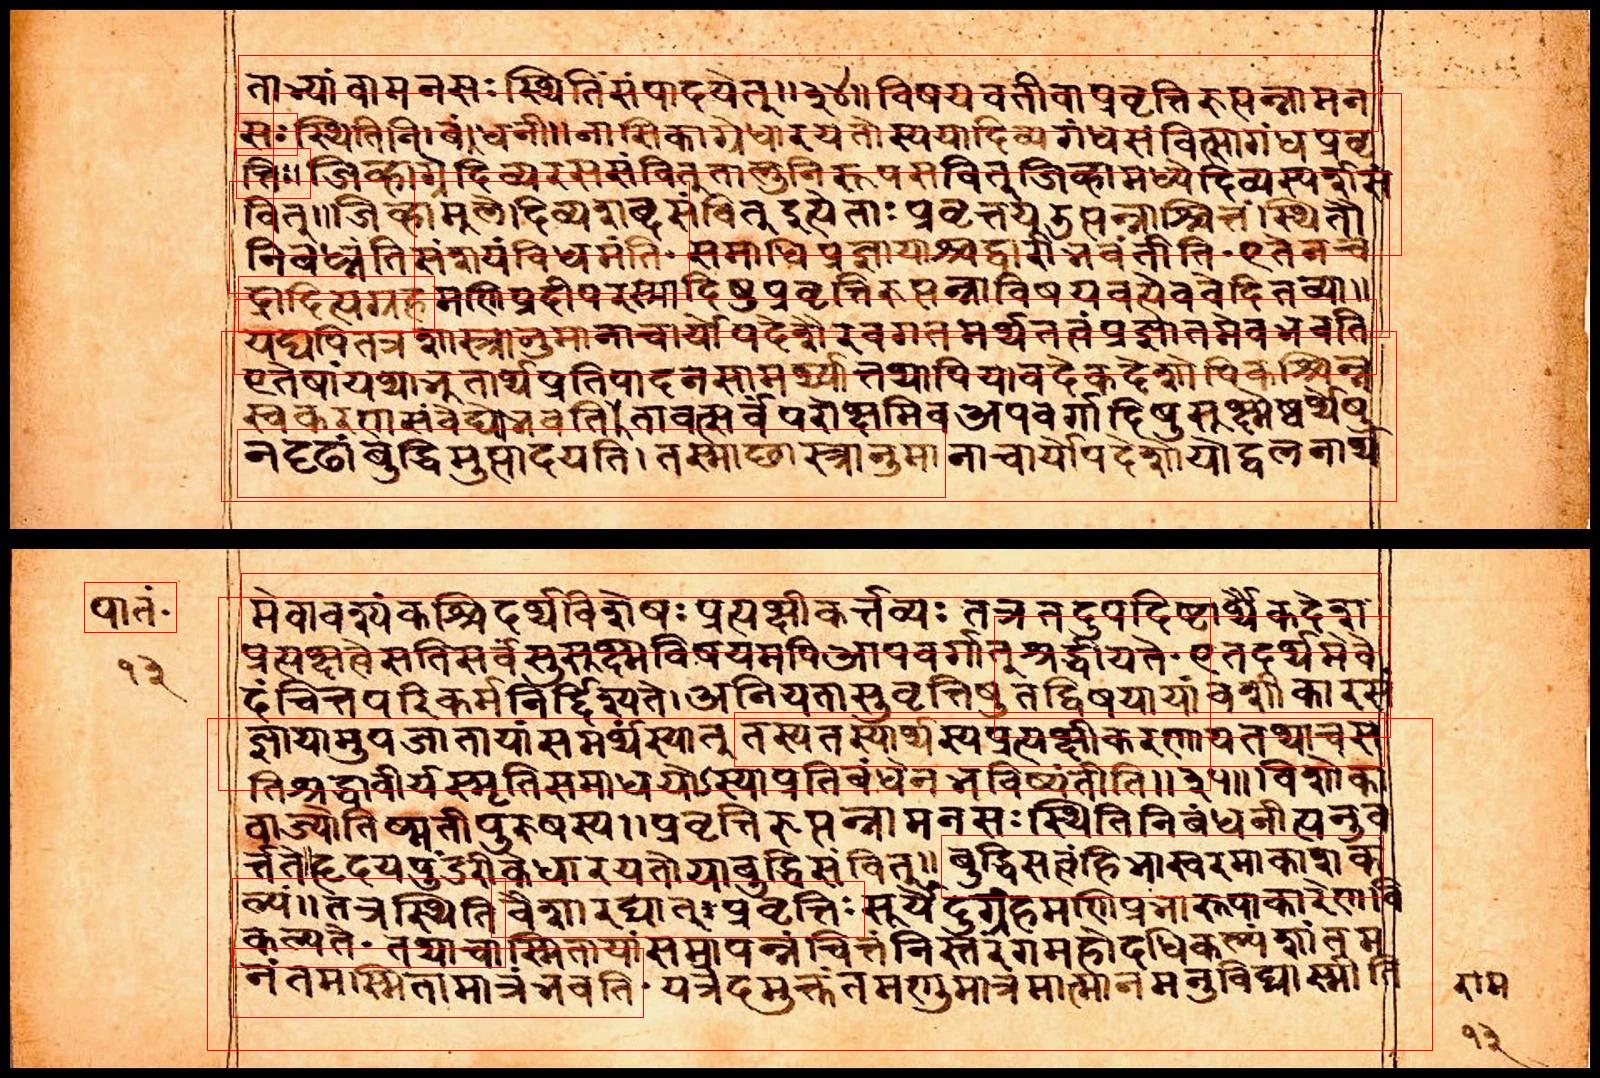 ताभ्यां वा मनसः स्थितिं संपादयेत्॥३४॥ विषयवती वा प्रवृत्तिरुत्पन्ना मन
सः स्थितिनिबंधनी॥ नासिकाग्रे धारयतोस्य या दिव्यगंधसंवित्सा गंधप्रवृ
त्तिः॥ जिव्हाग्रे दिव्यरससंवित् तालुनि रूपसंवित् जिव्हामध्ये दिव्यस्पर्शसं
वित्॥ जिव्हामुले दिव्यशब्दसंवित् इत्येताः प्रवृत्तय उत्पन्नाश्चित्तं स्थितौ
निबध्नंति संशयं विधमंति· समाधिप्रज्ञायाश्च द्वारीभवंतीति· एतेन चं
द्रादित्यग्रहमणिप्रदीपरस्मादिषु प्रवृत्तिरुत्पन्ना विषयवत्येव वेदितव्या॥
यद्यपि तत्र शास्त्रानुमानाचार्योपदेशैरवगतमर्थतत्वं प्रज्ञातमेव भवति
एतेषां यथाभुतार्थप्रतिपादनसामर्थ्या तथापि यावदेकदेशोपि कश्चिन्न
स्वकरणासंवेद्यो भवति। तावत्सर्वं परोक्षमिव अपवर्गादिषु सुक्ष्मेष्वर्थेषु
न दृढां बुद्धिमुत्पादयति। तस्माछास्त्रानुमानाचार्योपदेशोपोद्वलनार्थ
पातं·
१३
मेवावश्यं कश्चिदर्थविशेषः प्रत्यक्षीकर्त्तव्यः तत्र तदुपदिष्टार्थैकदेश
प्रत्यक्षत्वे सति सर्वं सुसुक्ष्मविषयमपि आपवर्गात् श्रर्द्धीयते· एतदर्थमेवे
दं चित्तपरिकर्म निर्द्दिश्यते। अनियतासु वृत्तिषु तद्विषयायां वशीकारसं
ज्ञायामुपजातायां समर्थं स्यात् तस्य तस्यार्थस्य प्रत्यक्षीकरणायत तथा च स
ति श्रद्धावीर्यस्मृतिसमाधयोऽस्याप्रतिबंधेन भविष्यंतीति॥३५॥ विशोका
वा ज्योतिष्मती पुरुषस्य॥ प्रवृत्तिरुत्पन्ना मनसः स्थितिनिबंधनीत्यनुव
र्त्तते हृदयपुंडरीके धारयतो या बुद्धिसंवित्॥ बुद्धिसत्वं हि भास्वरमाकाशक
ल्पं॥ तत्र स्थितिवैशारद्यात् प्रवृत्तिः सूर्येंदुग्रहमणिप्रभारूपाकारेण वि
कल्पते· तथा चास्मितायां समापन्नं चित्तं निस्तरंगमहोदधिकल्पं शांतम
नंतमस्मितामात्रं भवति· यत्रेदमुक्तं तमणुमात्रमात्मानमनुविद्यास्मीति
राम
१३